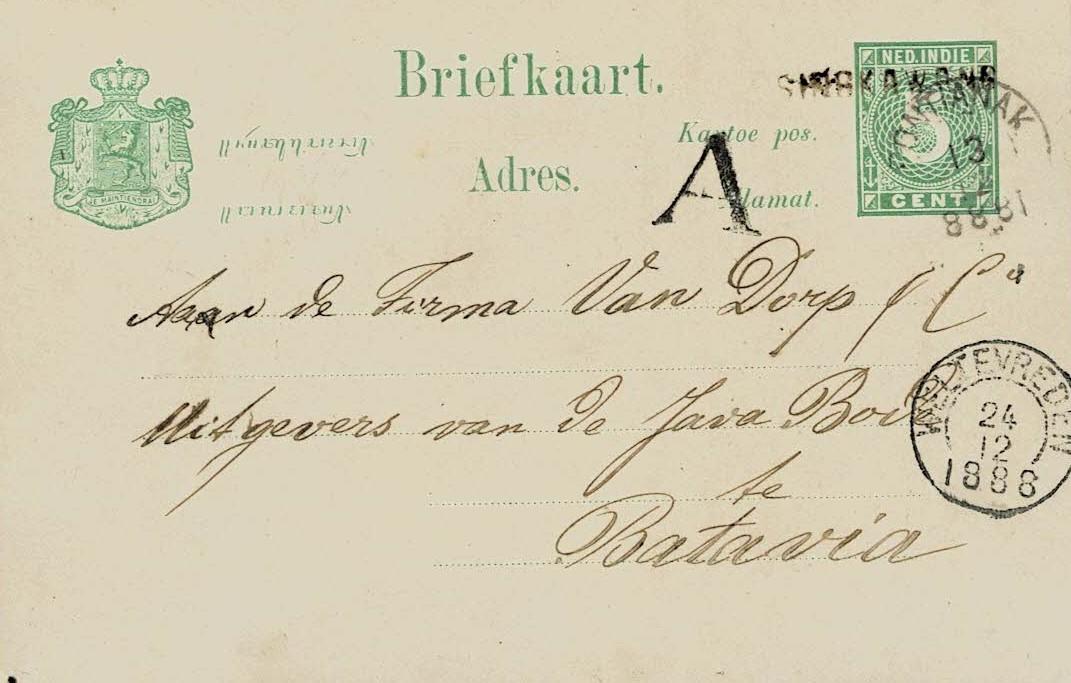 Briefkaart.
NED. INDIE
SINGKAWANG
Kartoe pos.
PONTIANAK
13
12
1888
Adres.
A
Alamat.
CENT
JE MAINTIENDRAI
Aan de Firma Van Dorp & Co
WELTEVREDEN
24
12
1888
Uitgevers van de Java Bode
te
Batavia